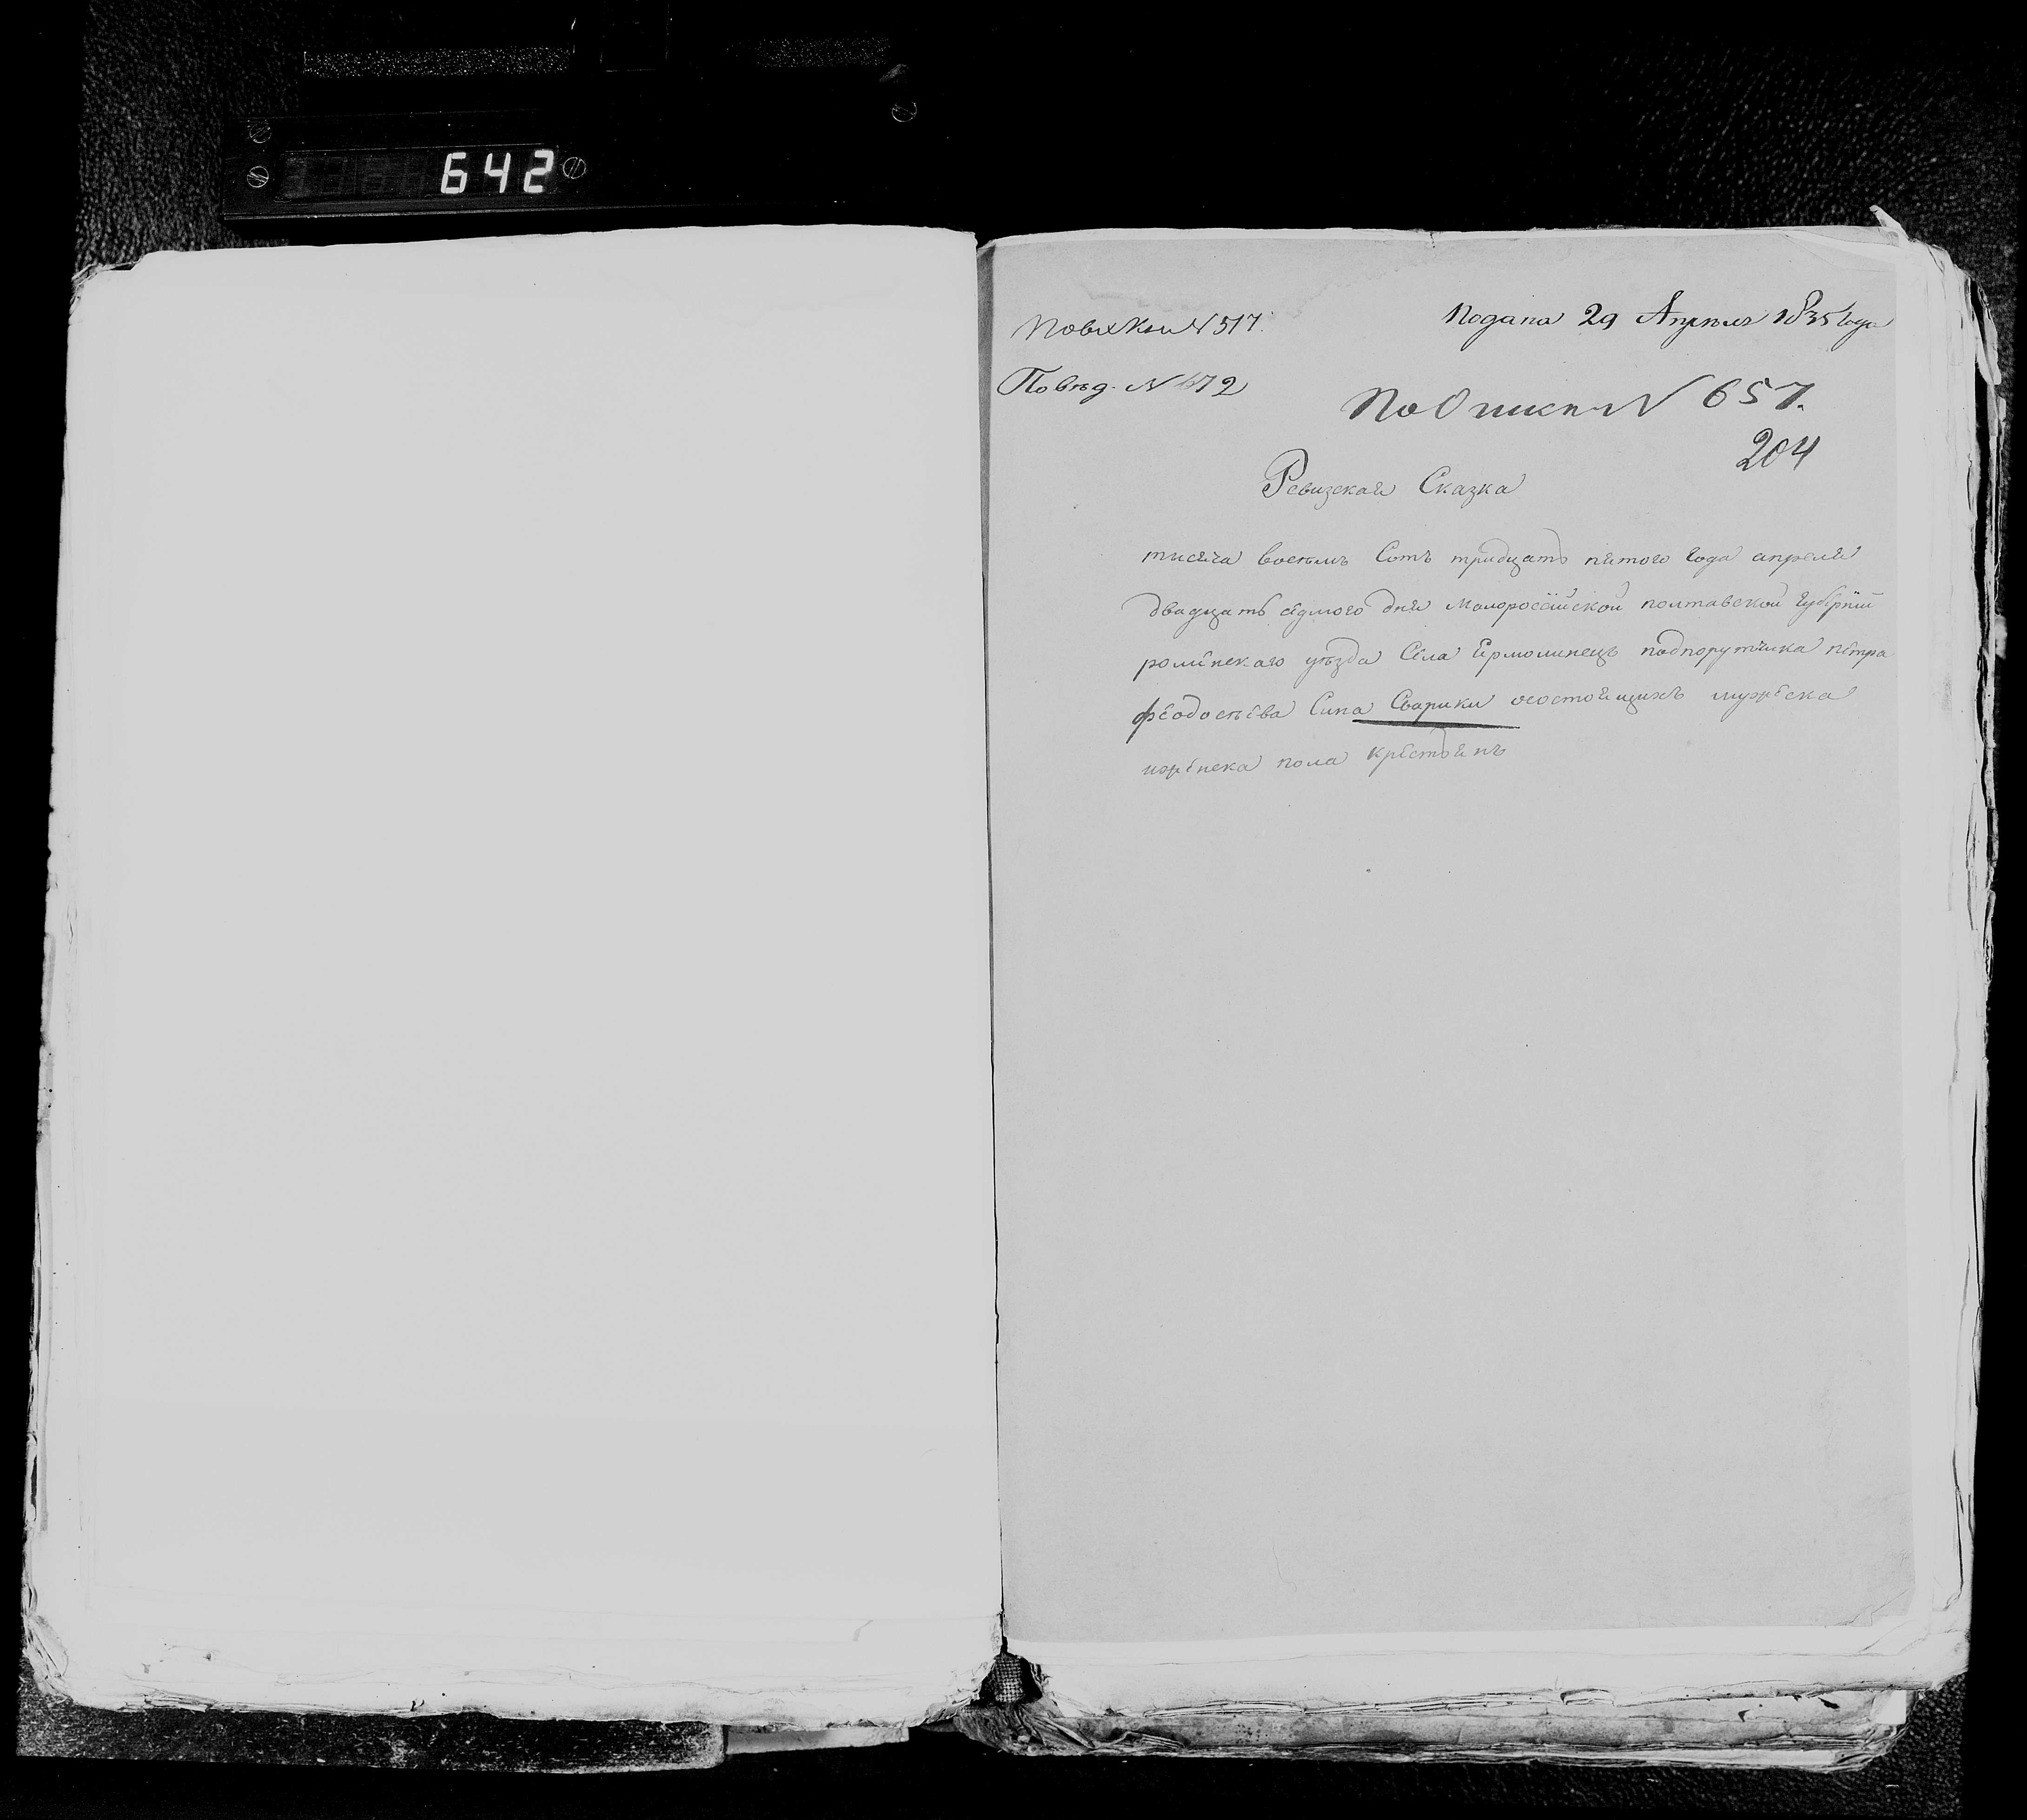 642
Подана 29 Апреля 1835 года
№ 517.
По вѣд. № 672
По Описи № 657.
204
Ревизская Сказка
тысяча восемъ Сотъ тридцать пятого года апреля
двадцать седмого дня Малоросѣйской полтавской губернии
роменскаго уезда Села Ермолинецъ подпорутчика петра
феодосѣева Сына Сварики осостоящихъ мужеска
иженска пола крестьянъ